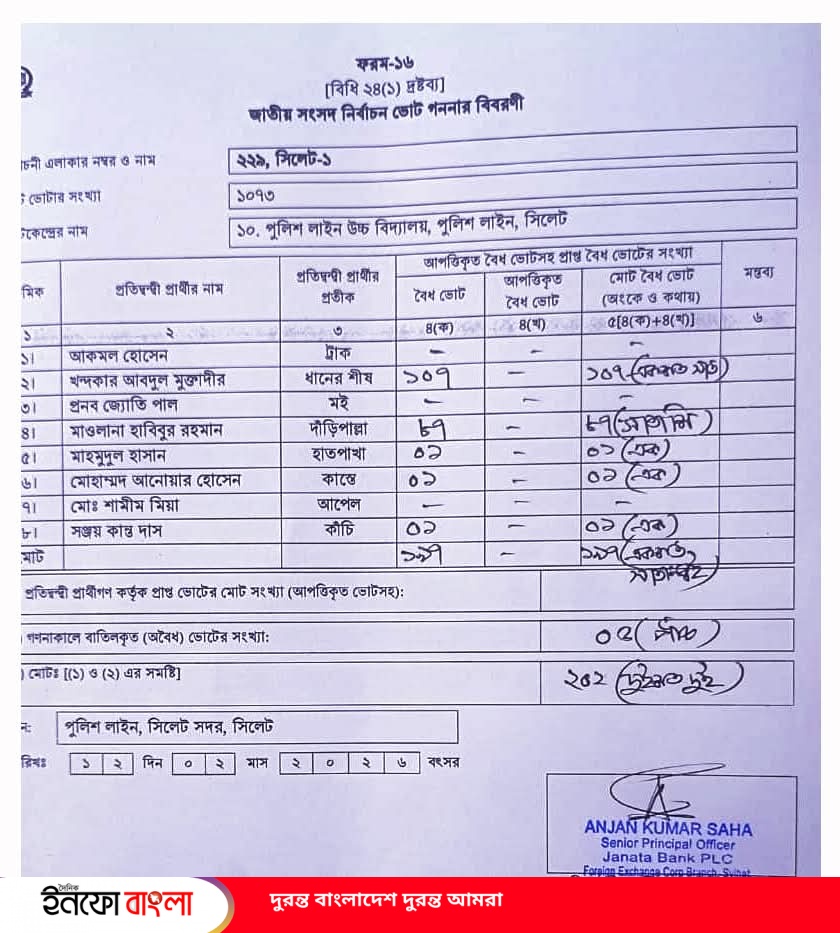 ফরম-১৬
[বিধি ২৪(১) দ্রষ্টব্য]
জাতীয় সংসদ নির্বাচন ভোট গননার বিবরণী
চনী এলাকার নম্বর ও নাম ২২৯, সিলেট-১
ভোটার সংখ্যা ১০৭৩
টকেন্দ্রের নাম ১০. পুলিশ লাইন উচ্চ বিদ্যালয়, পুলিশ লাইন, সিলেট
মিক প্রতিদ্বন্দ্বী প্রার্থীর নাম প্রতিদ্বন্দ্বী প্রার্থীর প্রতীক আপত্তিকৃত বৈধ ভোটসহ প্রাপ্ত বৈধ ভোটের সংখ্যা মন্তব্য
বৈধ ভোট আপত্তিকৃত বৈধ ভোট মোট বৈধ ভোট (অংকে ও কথায়)
১ ২ ৩ ৪(ক) ৪(খ) ৫[৪(ক)+৪(খ)] ৬
১। আকমল হোসেন ট্রাক – – –
২। খন্দকার আবদুল মুক্তাদীর ধানের শীষ ১০৭ – ১০৭ (একশত সাত)
৩। প্রনব জ্যোতি পাল মই – – –
৪। মাওলানা হাবিবুর রহমান দাঁড়িপাল্লা ৮৭ – ৮৭ (সাতাশি)
৫। মাহমুদুল হাসান হাতপাখা ০১ – ০১ (এক)
৬। মোহাম্মদ আনোয়ার হোসেন কাস্তে ০১ – ০১ (এক)
৭। মোঃ শামীম মিয়া আপেল – – –
৮। সঞ্জয় কান্ত দাস কাঁচি ০১ – ০১ (এক)
মাট ১৯৭ – ১৯৭ (একশত সাতানব্বই)
প্রতিদ্বন্দ্বী প্রার্থীগণ কর্তৃক প্রাপ্ত ভোটের মোট সংখ্যা (আপত্তিকৃত ভোটসহ):
গণনাকালে বাতিলকৃত (অবৈধ) ভোটের সংখ্যা: ০৫ (পাঁচ)
) মোটঃ [(১) ও (২) এর সমষ্টি] ২০২ (দুইশত দুই)
ন: পুলিশ লাইন, সিলেট সদর, সিলেট
রিখঃ ১ ২ দিন ০ ২ মাস ২ ০ ২ ৬ বৎসর
ANJAN KUMAR SAHA
Senior Principal Officer
Janata Bank PLC
Foreign Exchange Corp Branch, Sylhet
দৈনিক
ইনফো বাংলা
দুরন্ত বাংলাদেশ দুরন্ত আমরা